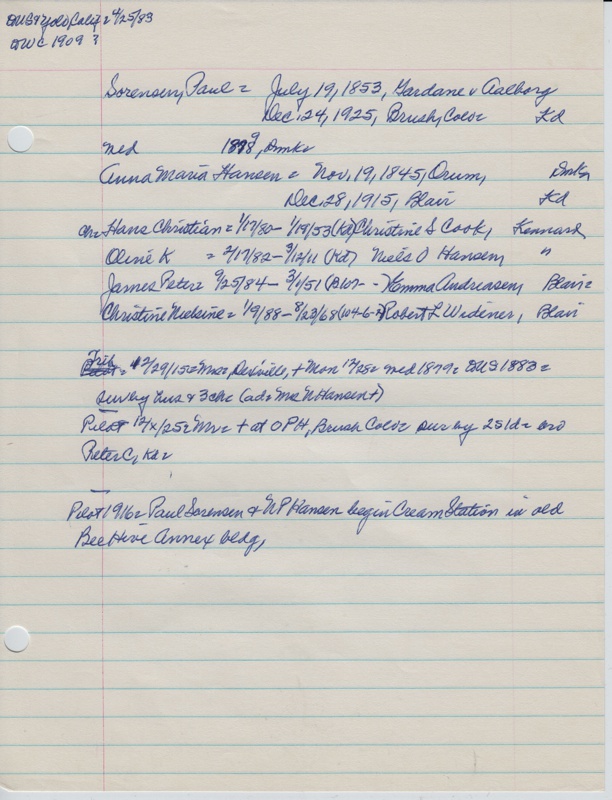 DUS 4/25/83
DWC 1909 ?
Sorensen, Paul = July 19, 1853, Gardane v Aalborg
Dec 24, 1925, Brush, Colo = Kd
med 1879, Dmk =
Anna Maria Hansen = Nov, 19, 1845, Orum, Dmk
Dec, 28, 1915, Blair Kd
ch = Hans Christian = 1/17/80 - 1/19/53 (Kd) Christine S Cook, Kennard
Oline K = 2/17/82 - 3/12/11 (Kd) Niels O Hansen, "
James Peter = 9/25/84 - 3/1/51 (B107- -) Emma Andreasen, Blair =
Christine Nielsine = 1/9/88 - 8/23/68 (104-6-) Robert L Widener, Blair
Trib = 12/29/15 = Mrs = , + Mon 12/25 = med 1879 = DUS 1883 =
sur by hus & 3 ch = (ad = Mrs N Hansen +)
Pilot 12/x/25 = Mr = + at OPH, Brush Colo = sur by 2S 1d = bro
Peter C, Kd =
Pilot 1916 = Paul Sorensen & NP Hansen begin Cream Station in old
Bee Hive Annex bldg,